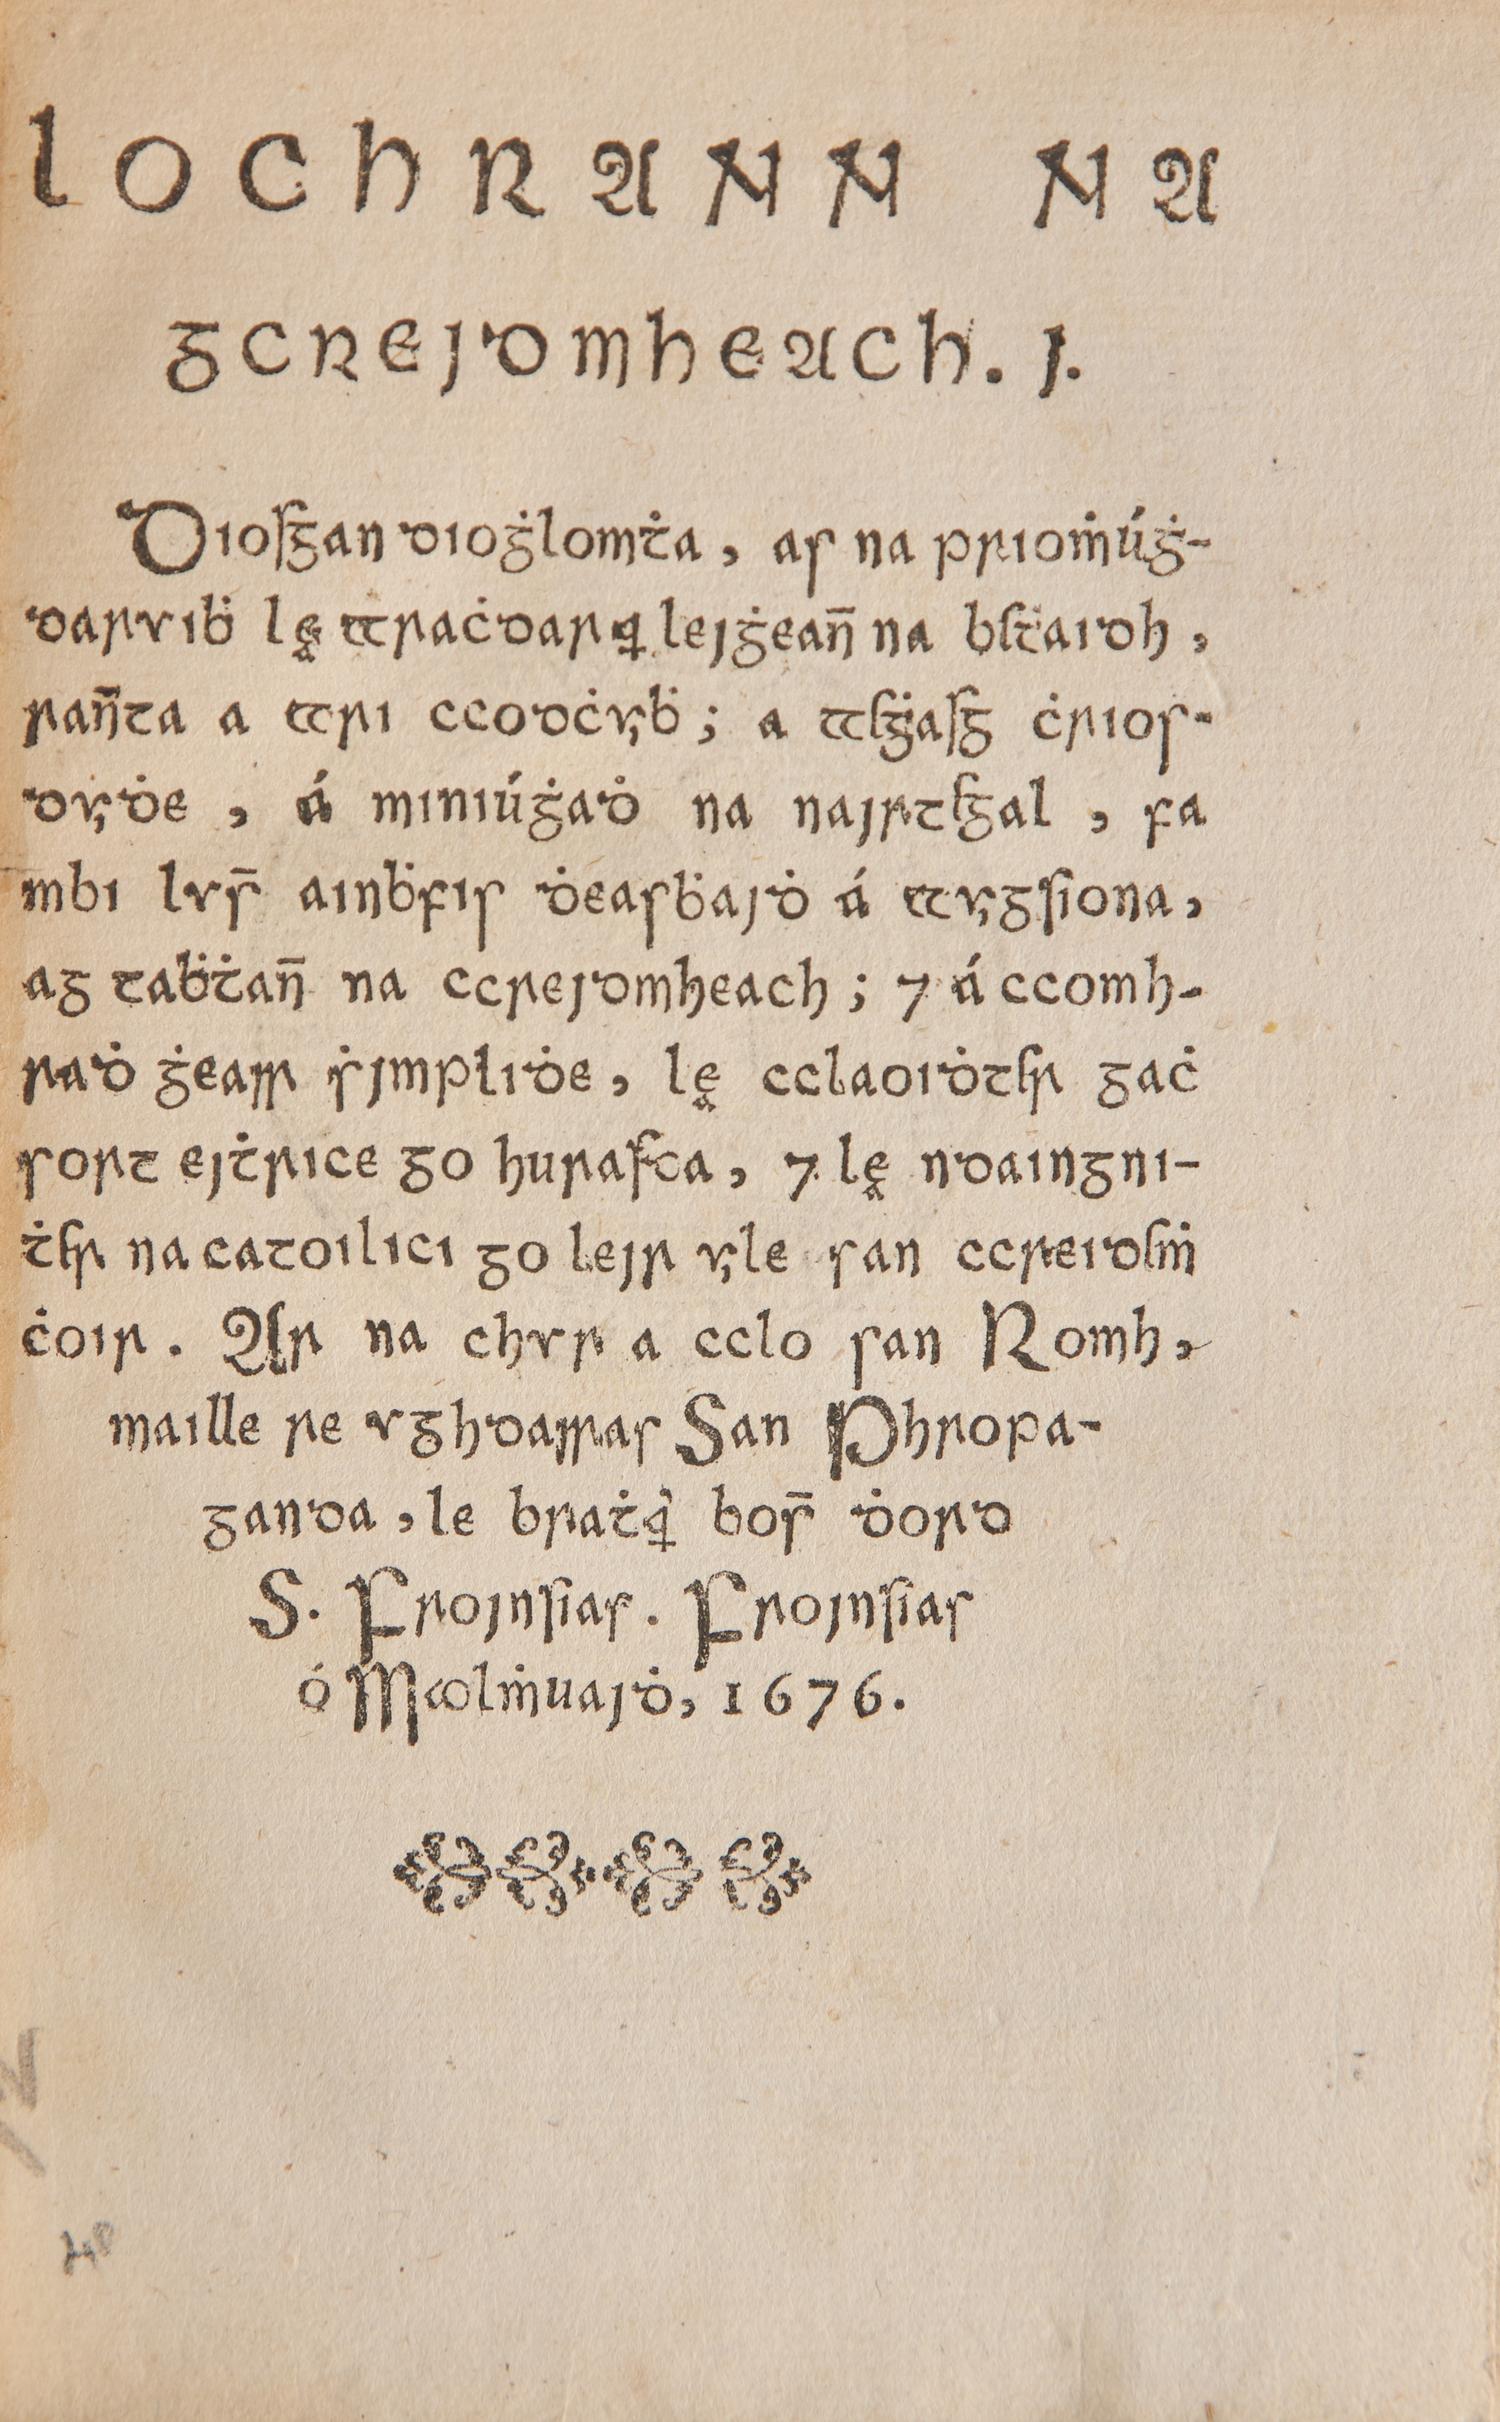 LOCHRANN NA
GCREJDMHEACH. J.
Diosgan dioġlomṫa, as na priomúġ-
darviḃ lę ttraċdarq lejġean̄ na bsṫaidh,
ran̄ta a ttri ccodċvįḃ; a ttſġasg ċrios-
dvįḋe, á miniúġaḋ na najrtſgal, fa
mbi lvs̄ ainḃfis ḋeasḃajḋ á ttvįgsiona,
ag taḃṫan̄ na ccrejdmheach; ⁊ á ccomh-
raḋ ġearr ṡjmpliḋe, lę cclaoiḋtſr gaċ
sort ejṫrice go hurasca, ⁊ lę ndaingni-
ṫſr na catoilici go lejr vįle san ccreidſṁ
ċoir. Ar na chvr a cclo san Romh,
maille re vghdarras San Phropa-
ganda, le braṫq bos̄ ḋord
S. Frojnsias. Frojnsias
ó Maolṁuajḋ, 1676.